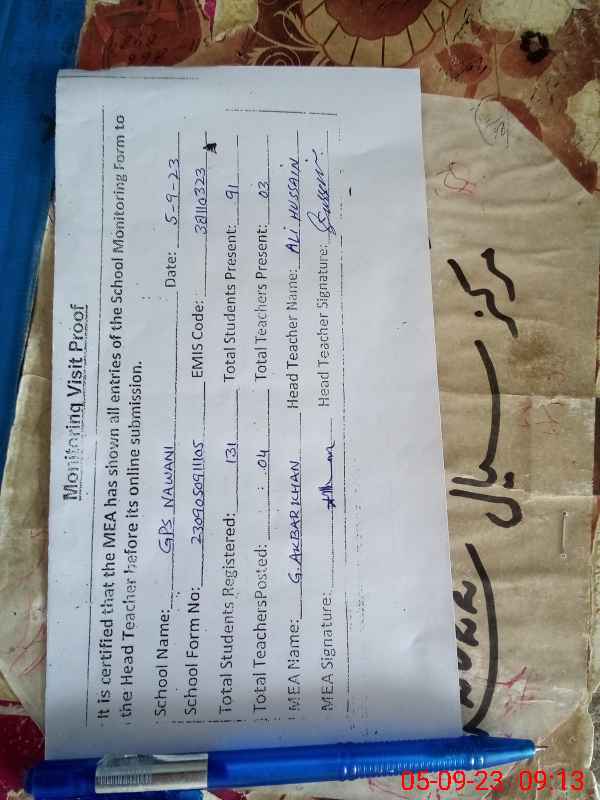 Monitoring Visit Proof
It is certified that the MEA has shown all entries of the School Monitoring Form to
the Head Teacher before its online submission.
School Name: GPS NAWANI Date: 5-9-23
School Form No: 2309050911105 EMIS Code: 38110323
Total Students Registered: 131 Total Students Present: 91
Total TeachersPosted: 04 Total Teachers Present: 03
MEA Name: G.AKBAR KHAN Head Teacher Name: ALI HUSSAIN
MEA Signature: Head Teacher Signature:
مرکز سیال
05-09-23 09:13